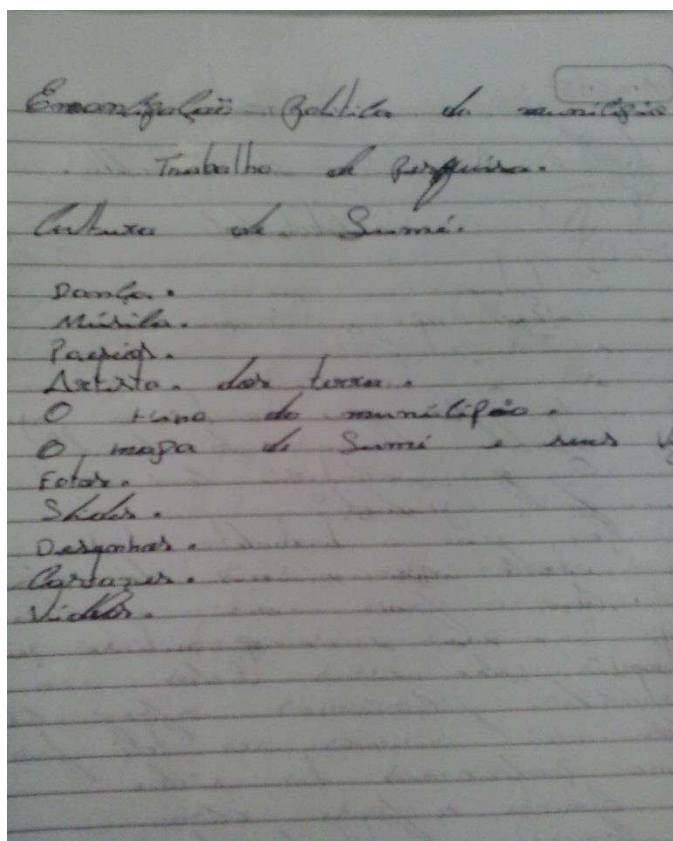 Emancipação política do município
Trabalho de pesquisa.
Cultura de Sumé.
Dança.
Música.
Artista. das terra.
O Hino do município.
O mapa de Sumé e seus
Fotos.
Slides.
Desenhos.
Cartazes.
Vídeos.